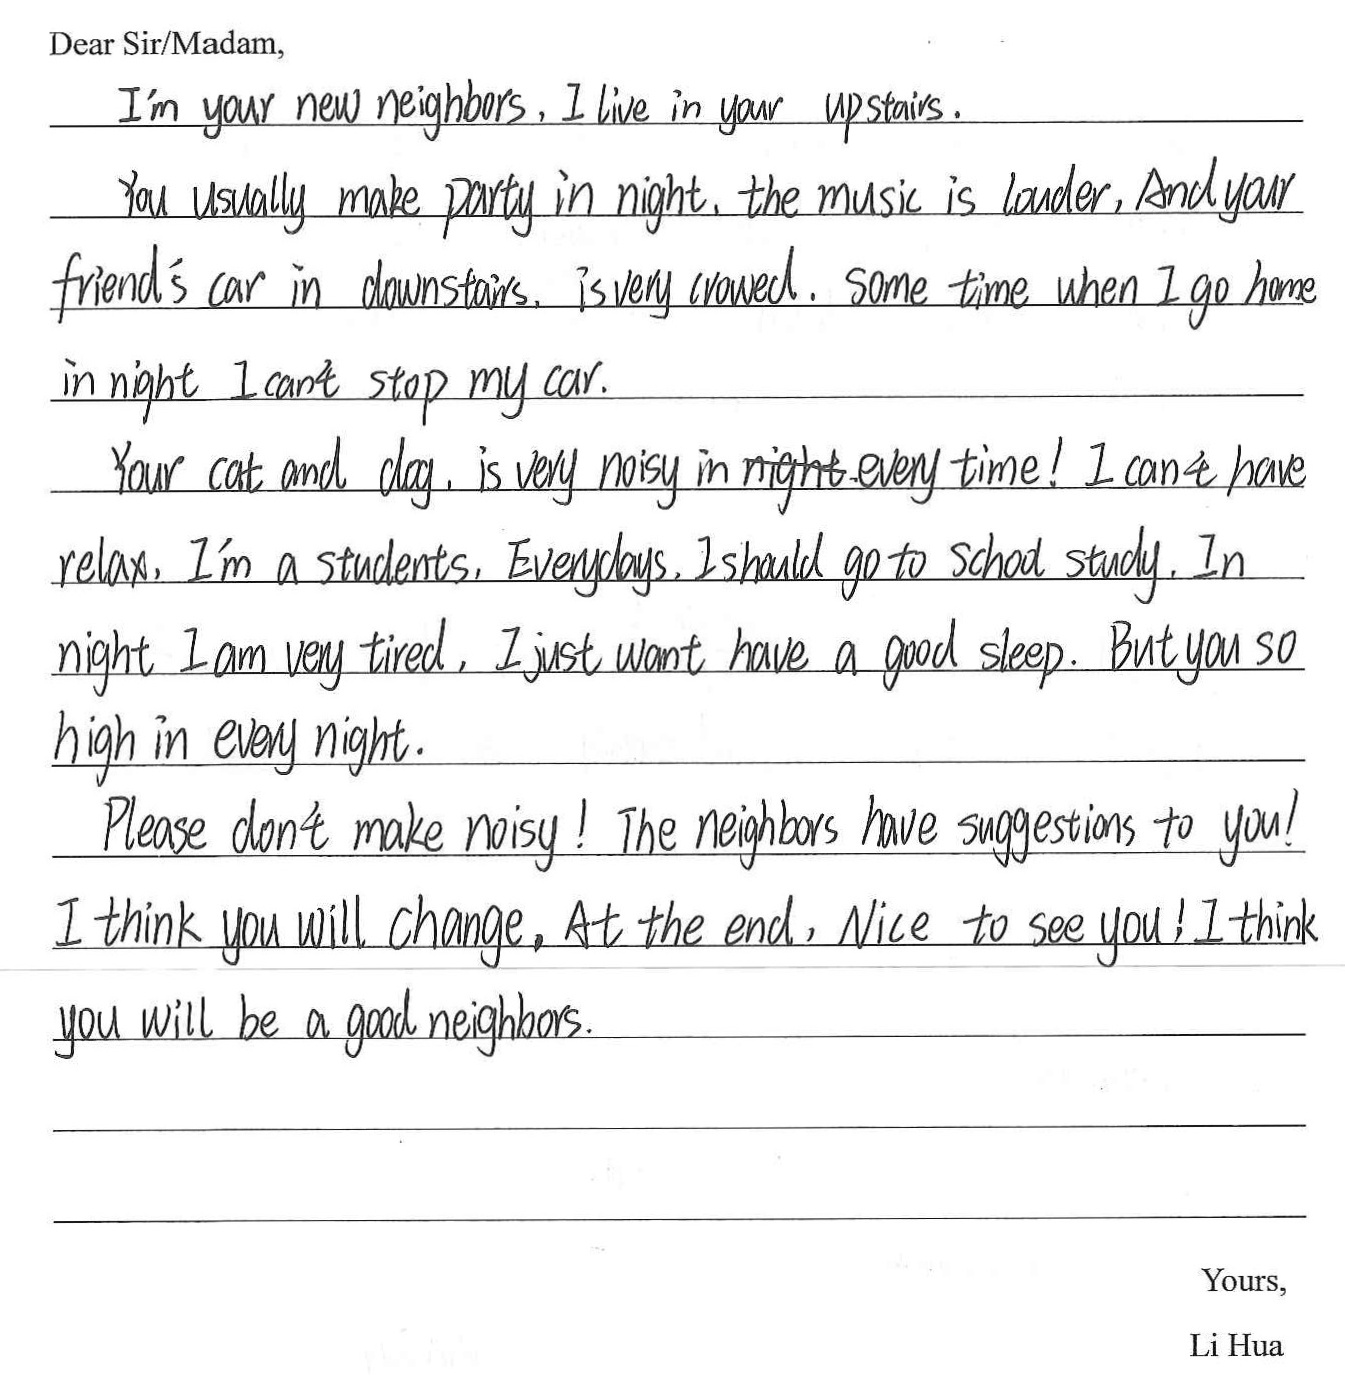 Dear Sir/Madam,
I'm your new neighbors, I live in your upstairs.
You usually make party in night, the music is louder, And your
friend's car in downstairs, is very crowed. Some time when I go home
in night I can't stop my car.
Your cat and dog, is very noisy in night every time! I can't have
relax, I'm a students, Everydays, I should go to school study. In
night I am very tired, I just want have a good sleep. But you so
high in every night.
Please don't make noisy! The neighbors have suggestions to you!
I think you will change, At the end, Nice to see you! I think
you will be a good neighbors.
Yours,
Li Hua